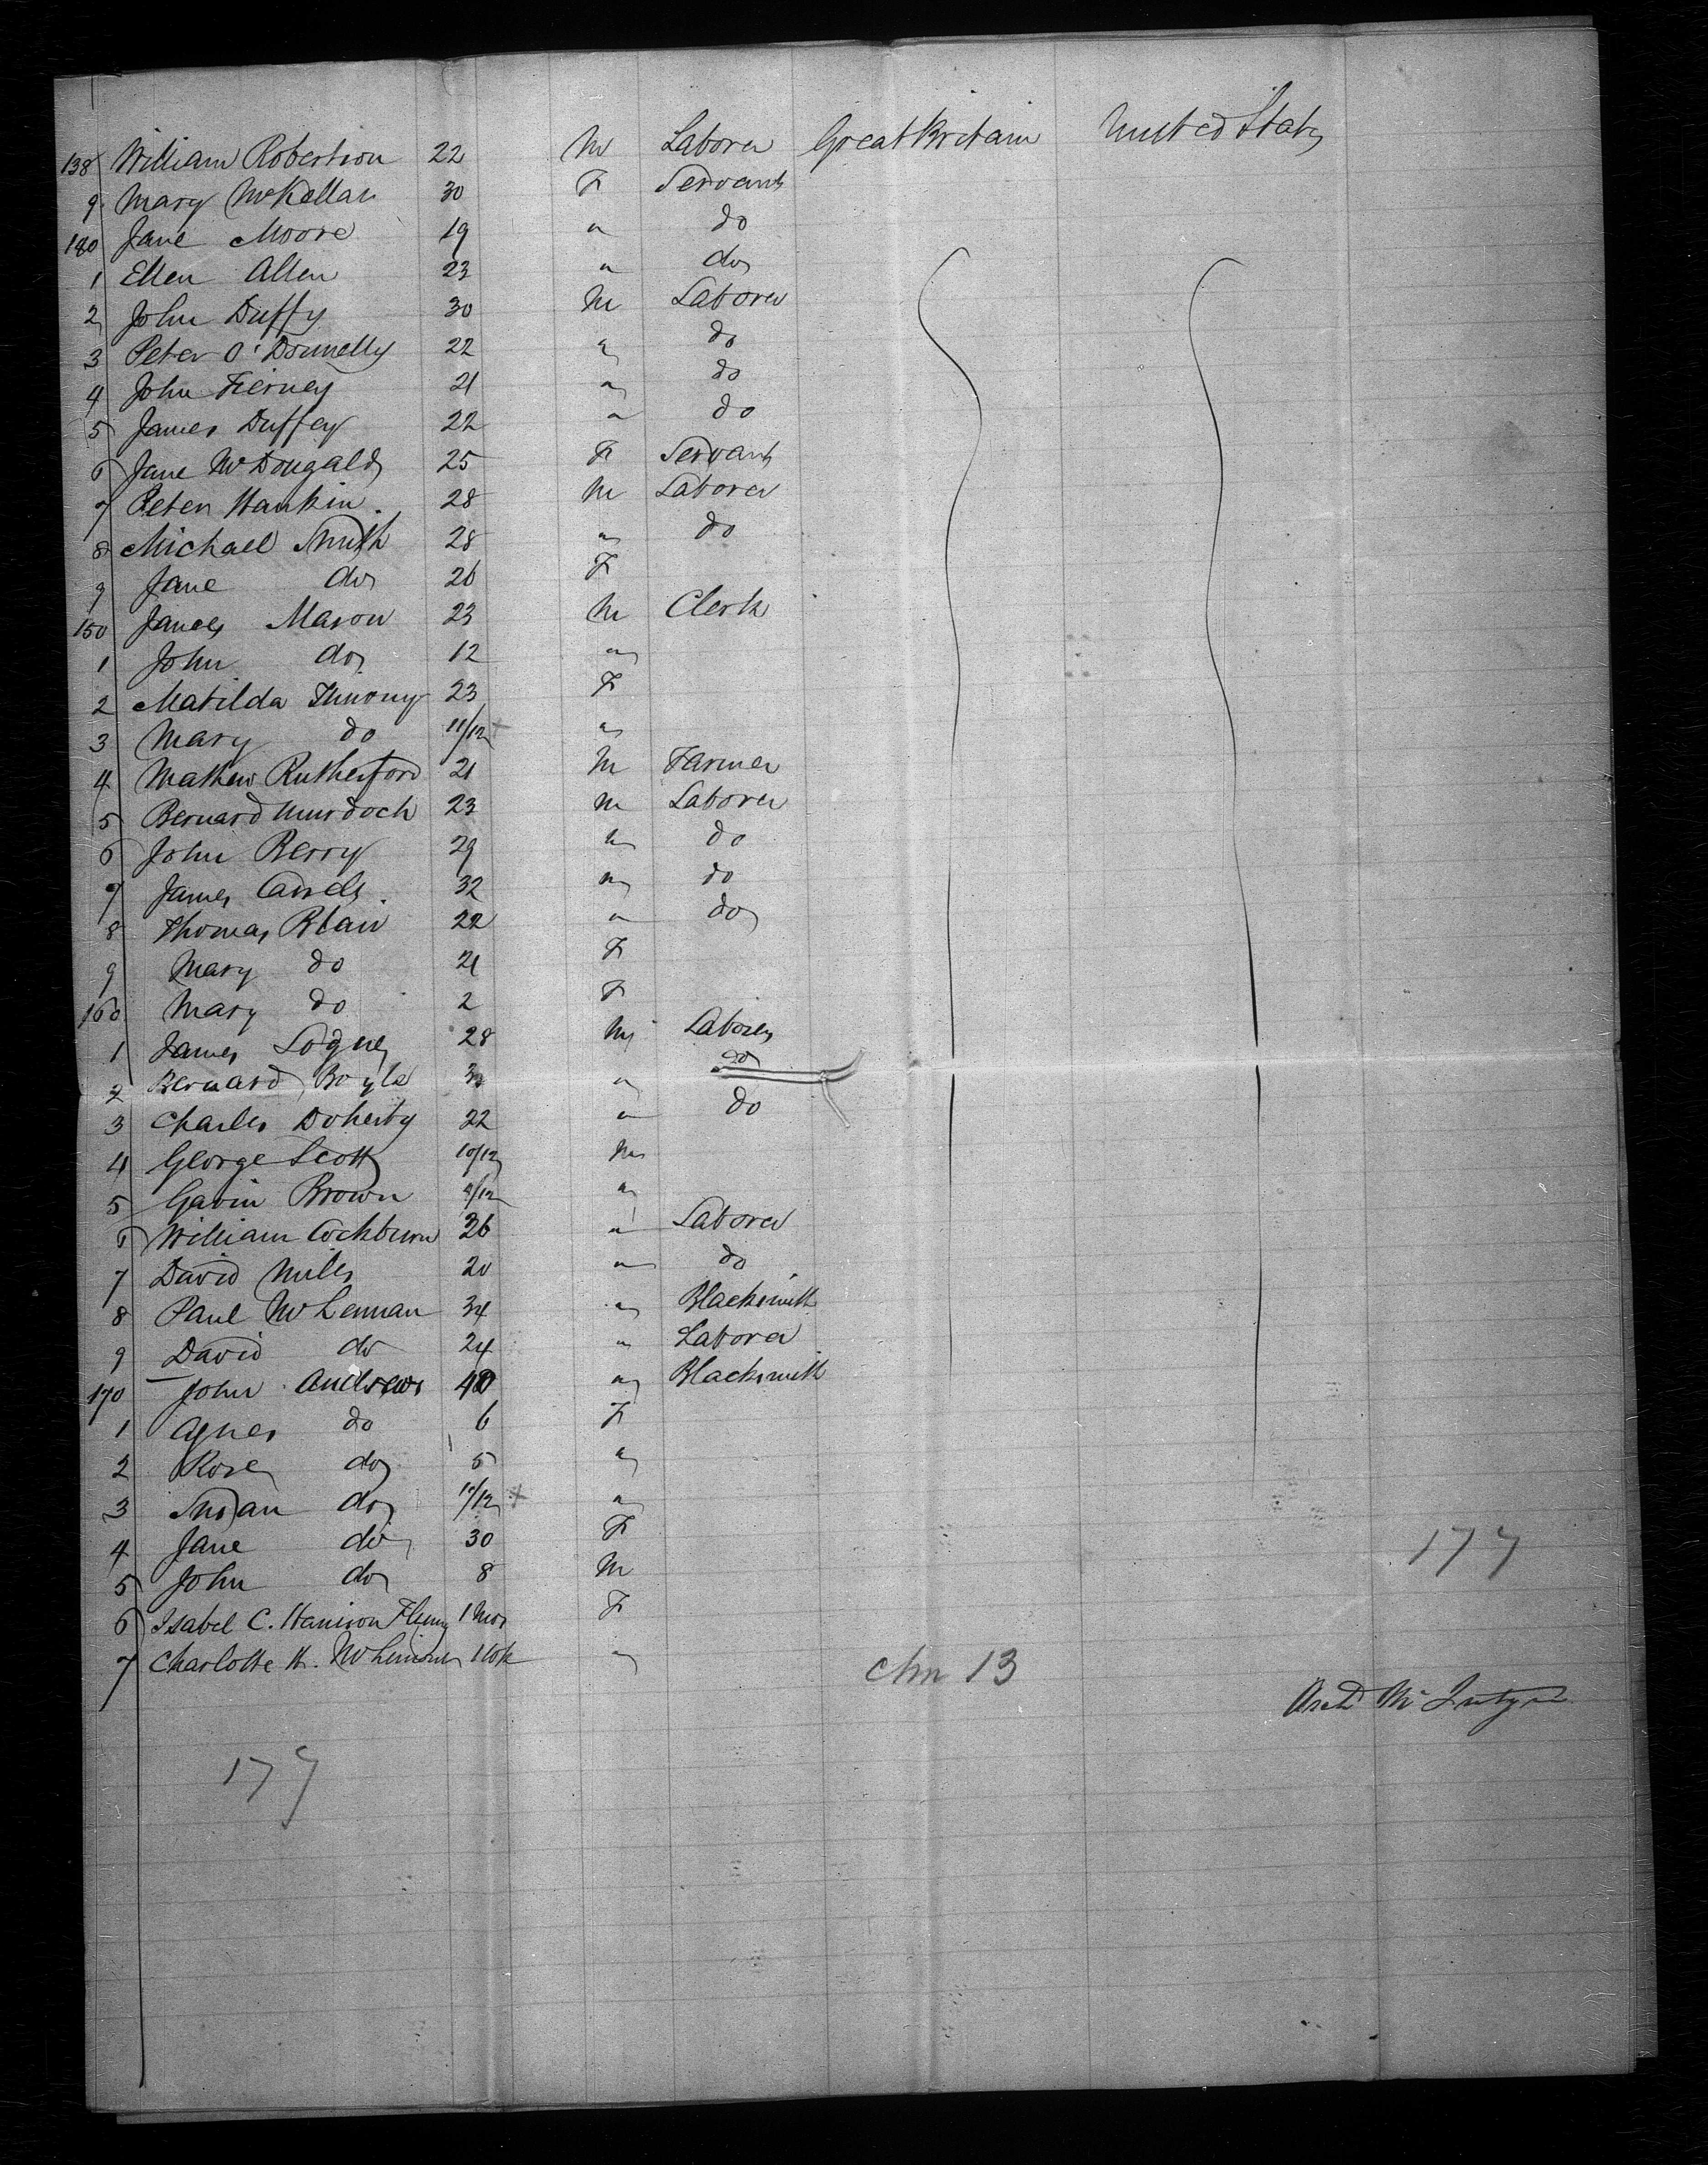 138 William Robertson 22 M Laborer Great Britain United States
9 Mary McKellar 30 F Servant
140 Jane Moore 19 " do
1 Ellen Allen 23 " do
2 John Duffy 30 M Laborer
3 Peter O'Donnelly 22 " do
4 John Tierney 21 " do
5 James Duffey 22 " do
6 Jane McDougald 25 F Servant
7 Peter Hankin 28 M Laborer
8 Michael Smith 28 " do
9 Jane do 26 F
150 James Mason 23 M Clerk
1 John do 12 "
2 Matilda 23 F
3 Mary do 11/12 "
4 Mathew Rutherford 21 M Farmer
5 Bernard Murdoch 23 M Laborer
6 John Berry 29 " do
7 James 32 " do
8 Thomas Blair 22 " do
9 Mary do 21 F
160 Mary do 2 F
1 James Logue 28 M Laborer
2 Bernard Boyle " do
3 Charles Doherty 22 " do
4 George Scott 10/12 M
5 Gavin Brown 9/12 "
6 William Cockburn 26 " Laborer
7 David Miles 20 " do
8 Paul McLennan 34 " Blacksmith
9 David do 24 " Laborer
170 John Andrews 40 " Blacksmith
1 Agnes do 6 F
2 Rose do 5 "
3 Susan do 11/12 "
4 Jane do 30 F
5 John do 8 M
177
6 Isabel C. Hanison Fleming 1 Mos F
7 Charlotte H. 1 Wk "
Chn 13
Arch McIntyre
177